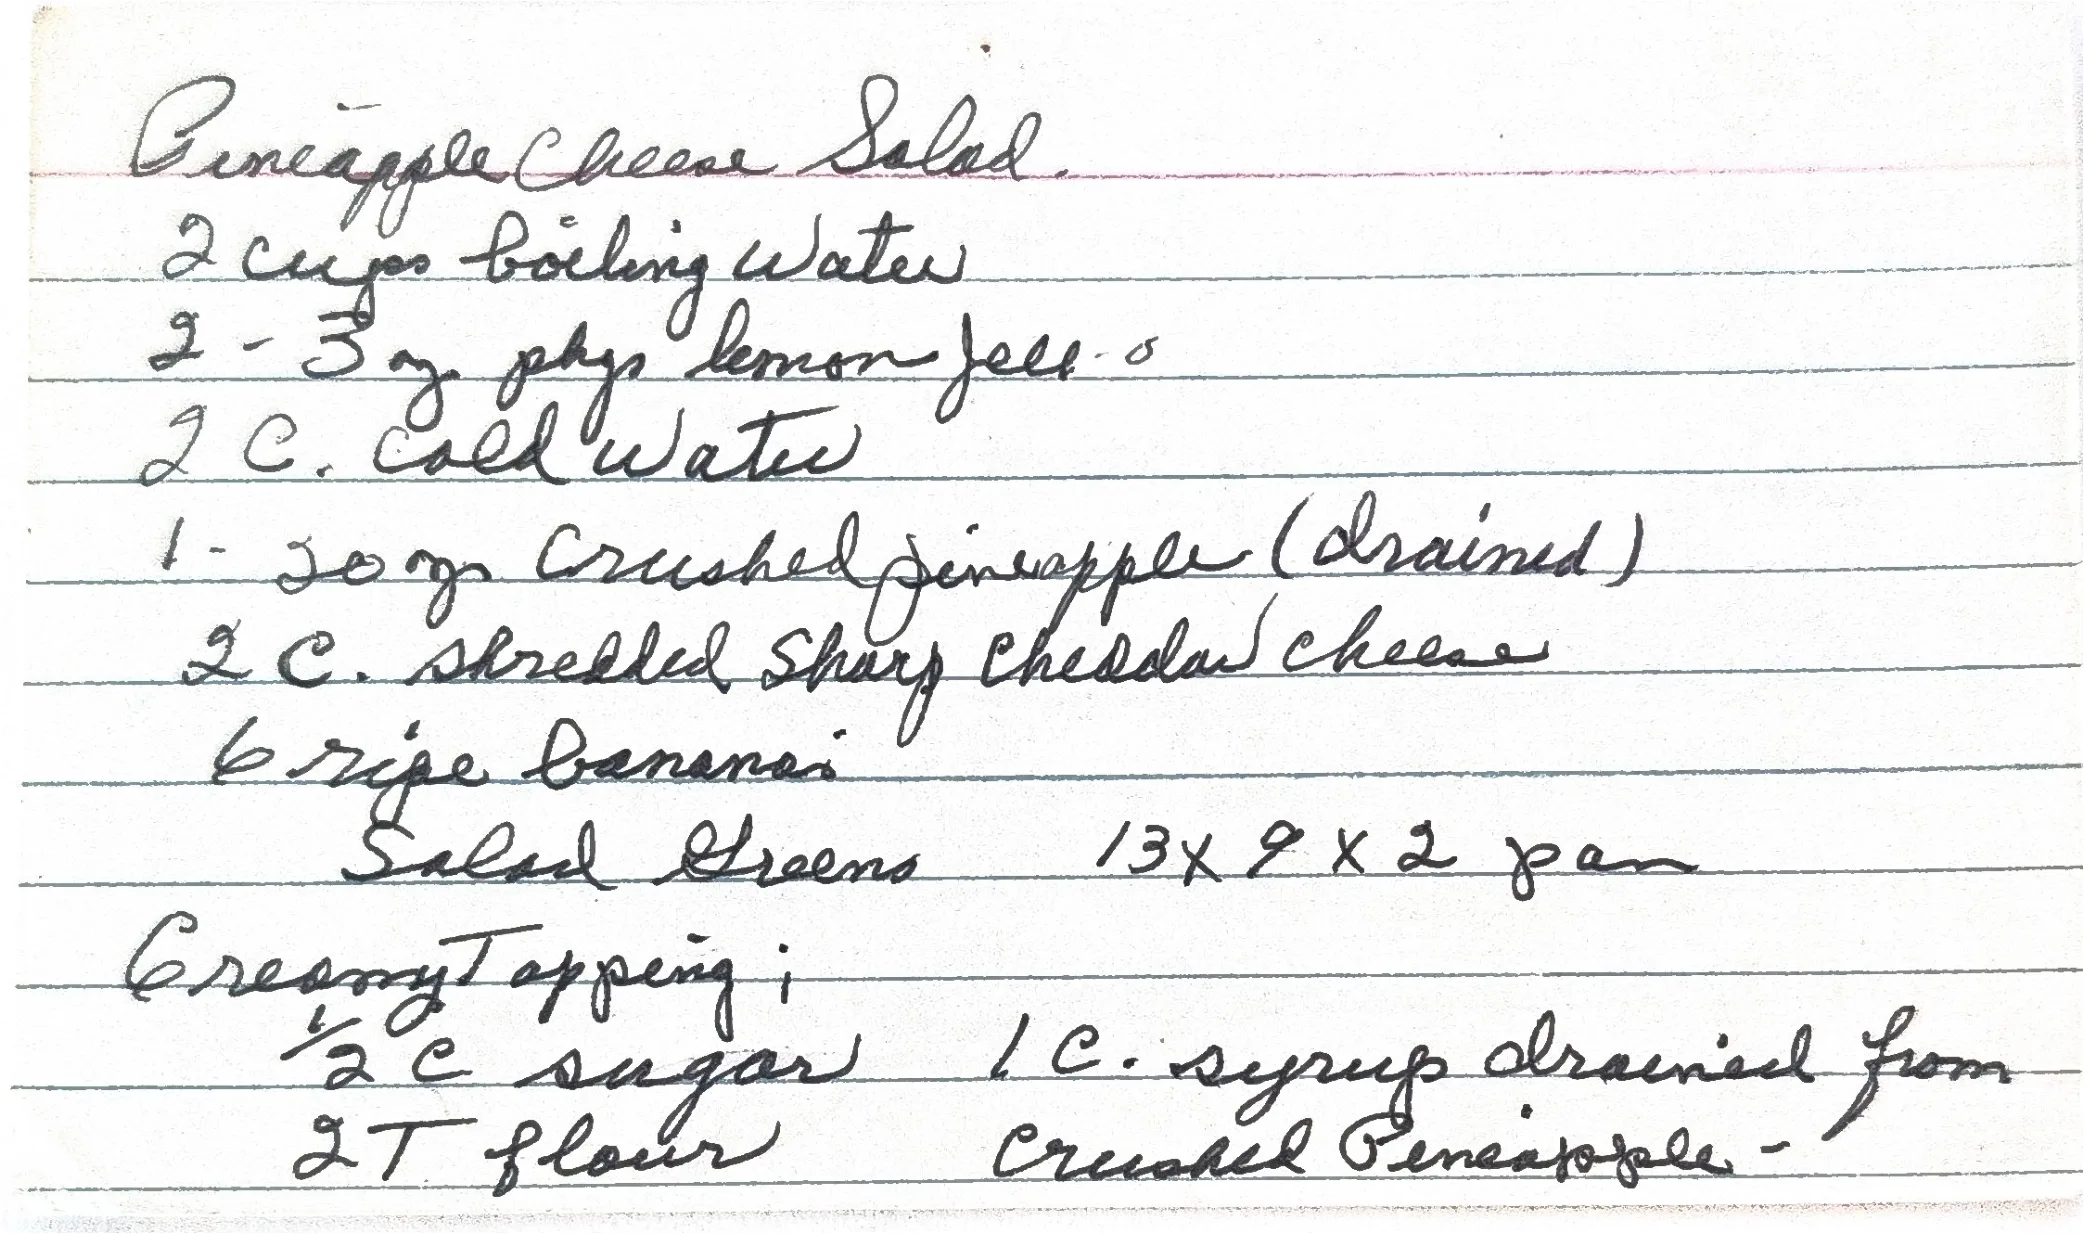 Pineapple Cheese Salad.
2 cups boiling water
2 - 3 oz. pkgs lemon Jell-o
2 C. cold water
1 - 20 oz. crushed pineapple (drained)
2 C. shredded sharp cheddar cheese
6 ripe bananas
Salad Greens 13 x 9 x 2 pan
Creamy Topping;
1/2 C sugar 1 C. syrup drained from
2 T flour crushed Pineapple -